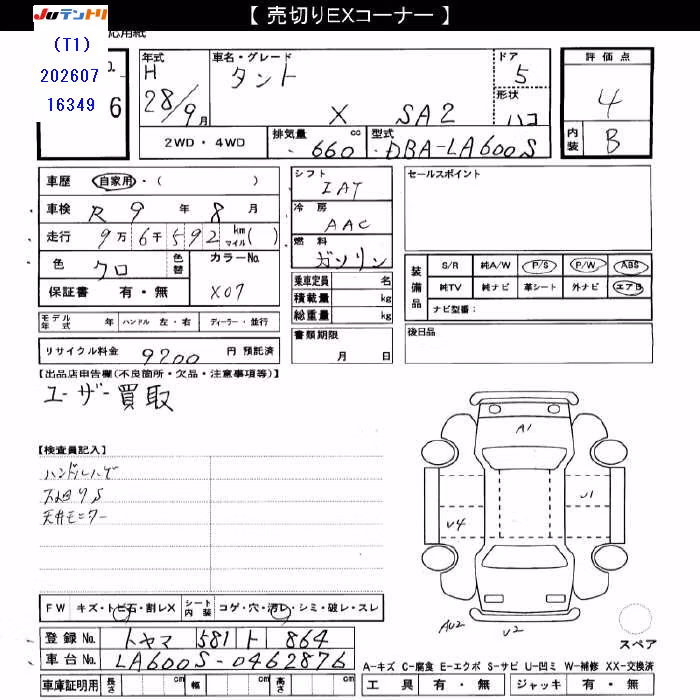 【 売切りEXコーナー 】
JUテントリ
応用紙
(T1)
202607
16349
6
年式 車名・グレード ドア 評価点
H タント 5
28/9月 形状 4
X SA2 ハコ
2WD・4WD 排気量 cc 型式 内装 B
660 DBA-LA600S
車歴 自家用・( )
車検 R 9 年 8 月
走行 9万 6千 5 9 2 km マイル( )
色 クロ 色替 カラーNo.
保証書 有・無 X07
モデル年式 年 ハンドル 左・右 ディーラー・並行
リサイクル料金 9200 円 預託済
シフト IAT
冷房 AAC
燃料 ガソリン
乗車定員 名
積載量 kg
総重量 kg
書類期限
月 日
セールスポイント
装備品 S/R 純A/W P/S P/W ABS
純TV 純ナビ 革シート 外ナビ エアB
ナビ型番：
後日品
【出品店申告欄(不良箇所・欠品・注意事項等)】
ユーザー買取
【検査員記入】
ハンドルハゲ
天井モニター
FW キズ・トビ石・割レX シート内装 コゲ・穴・汚レ・シミ・破レ・スレ
登録No. トヤマ 581 ト 864
車台No. LA600S-0462876
車庫証明用 長さ cm 幅 cm 高さ cm
A1
U1
U4
AU2
U2
スペア
A-キズ C-腐食 E-エクボ S-サビ U-凹ミ W-補修 XX-交換済
工具 有・無 ジャッキ 有・無